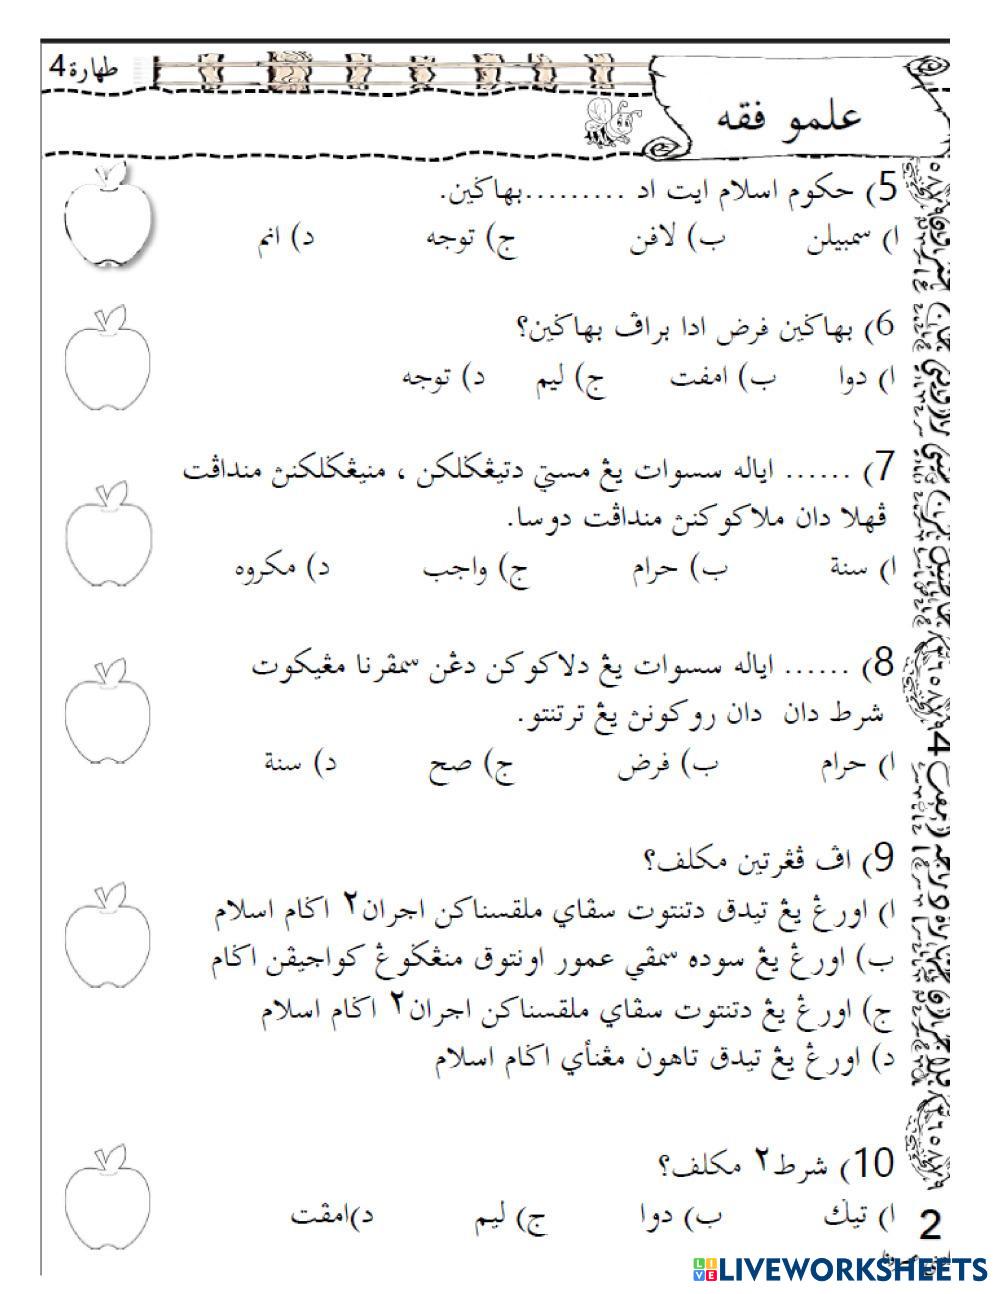 طهارة 4
علمو فقه
5) حكوم اسلام ايت اد .........بهاڬين.
ا) سمبيلن ب) لافن ج) توجه د) انم
6) بهاڬين فرض ادا براڤ بهاڬين؟
ا) دوا ب) امفت ج) ليم د) توجه
7) ...... اياله سسوات يڠ مستي دتيڠڬلكن ، منيڠڬلكنڽ منداڤت
ڤهلا دان ملاكوكنڽ منداڤت دوسا.
ا) سنة ب) حرام ج) واجب د) مكروه
8) ...... اياله سسوات يڠ دلاكوكن دڠن سمڤرنا مڠيكوت
شرط دان دان روكونڽ يڠ ترتنتو.
ا) حرام ب) فرض ج) صح د) سنة
9) اڤ ڤڠرتين مكلف؟
ا) اورڠ يڠ تيدق دتنتوت سڤاي ملقسناكن اجران٢ اڬام اسلام
ب) اورڠ يڠ سوده سمڤي عمور اونتوق منڠڬوڠ كواجيڤن اڬام
ج) اورڠ يڠ دتنتوت سڤاي ملقسناكن اجران٢ اڬام اسلام
د) اورڠ يڠ تيدق تاهون مڠنأي اڬام اسلام
10) شرط٢ مكلف؟
ا) تيݢ ب) دوا ج) ليم د)امڤت
2
LIVEWORKSHEETS